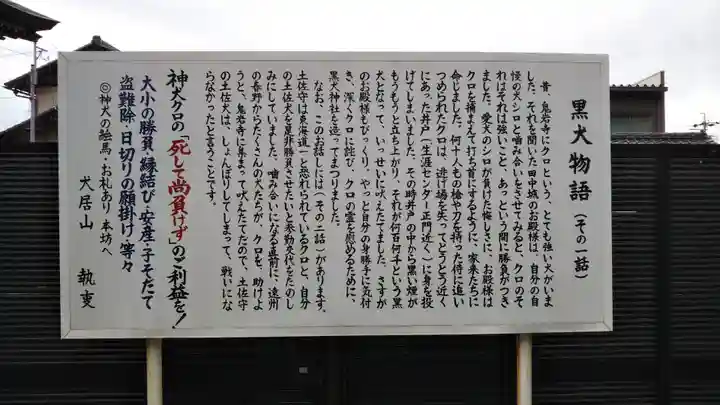 黒犬物語（その一話）
昔、鬼岩寺にクロという、とても強い犬がいま
した。それを聞いた田中城のお殿様は、自分の自
慢の犬シロと噛み合いをさせてみると、クロのそ
れはそれは強いこと、あっという間に勝負がつき
ました。愛犬のシロが負けた悔しさに、お殿様は
クロを捕まえて打ち首にするように、家来たちに
命じました。何十人もの槍や刀を持った侍に追い
つめられたクロは、逃げ場を失ってとうとう近く
にあった井戸（生涯センター正門近く）に身を投
げてしまいました。その時井戸の中から黒い煙が
もうもうと立ち上がり、それが何百何千という黒
犬となって、いっせいに吠えたてました。さすが
のお殿様もびっくり、やっと自分の身勝手に気付
き、深くクロに詫び、クロの霊を慰めるために、
黒犬神社を造ってまつりました。
なお、このお話しには（その二話）があります。
土佐守は東海道一と恐れられているクロと、自分
の土佐犬を是非勝負させたいと参勤交代をたのし
みにしていました。噛み合いになる直前に、遠州
の春野からたくさんの犬たちが、クロを、助けよ
うと、鬼岩寺に集まって吠えたてたので、土佐守
の土佐犬は、しょんぼりしてしまって、戦いにな
らなかったと言うことです。
神犬クロの「死して尚負けず」のご利益を！
大小の勝負、縁結び・安産・子そだて
盗難除・日切りの願掛け・等々
◎神犬の絵馬・お札あり 本坊へ
犬居山 執事